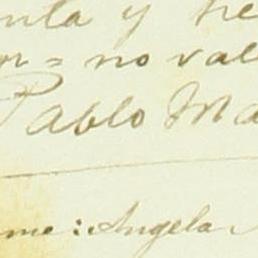 nta y tre
or = no vale
Pablo Ma
me: Angela